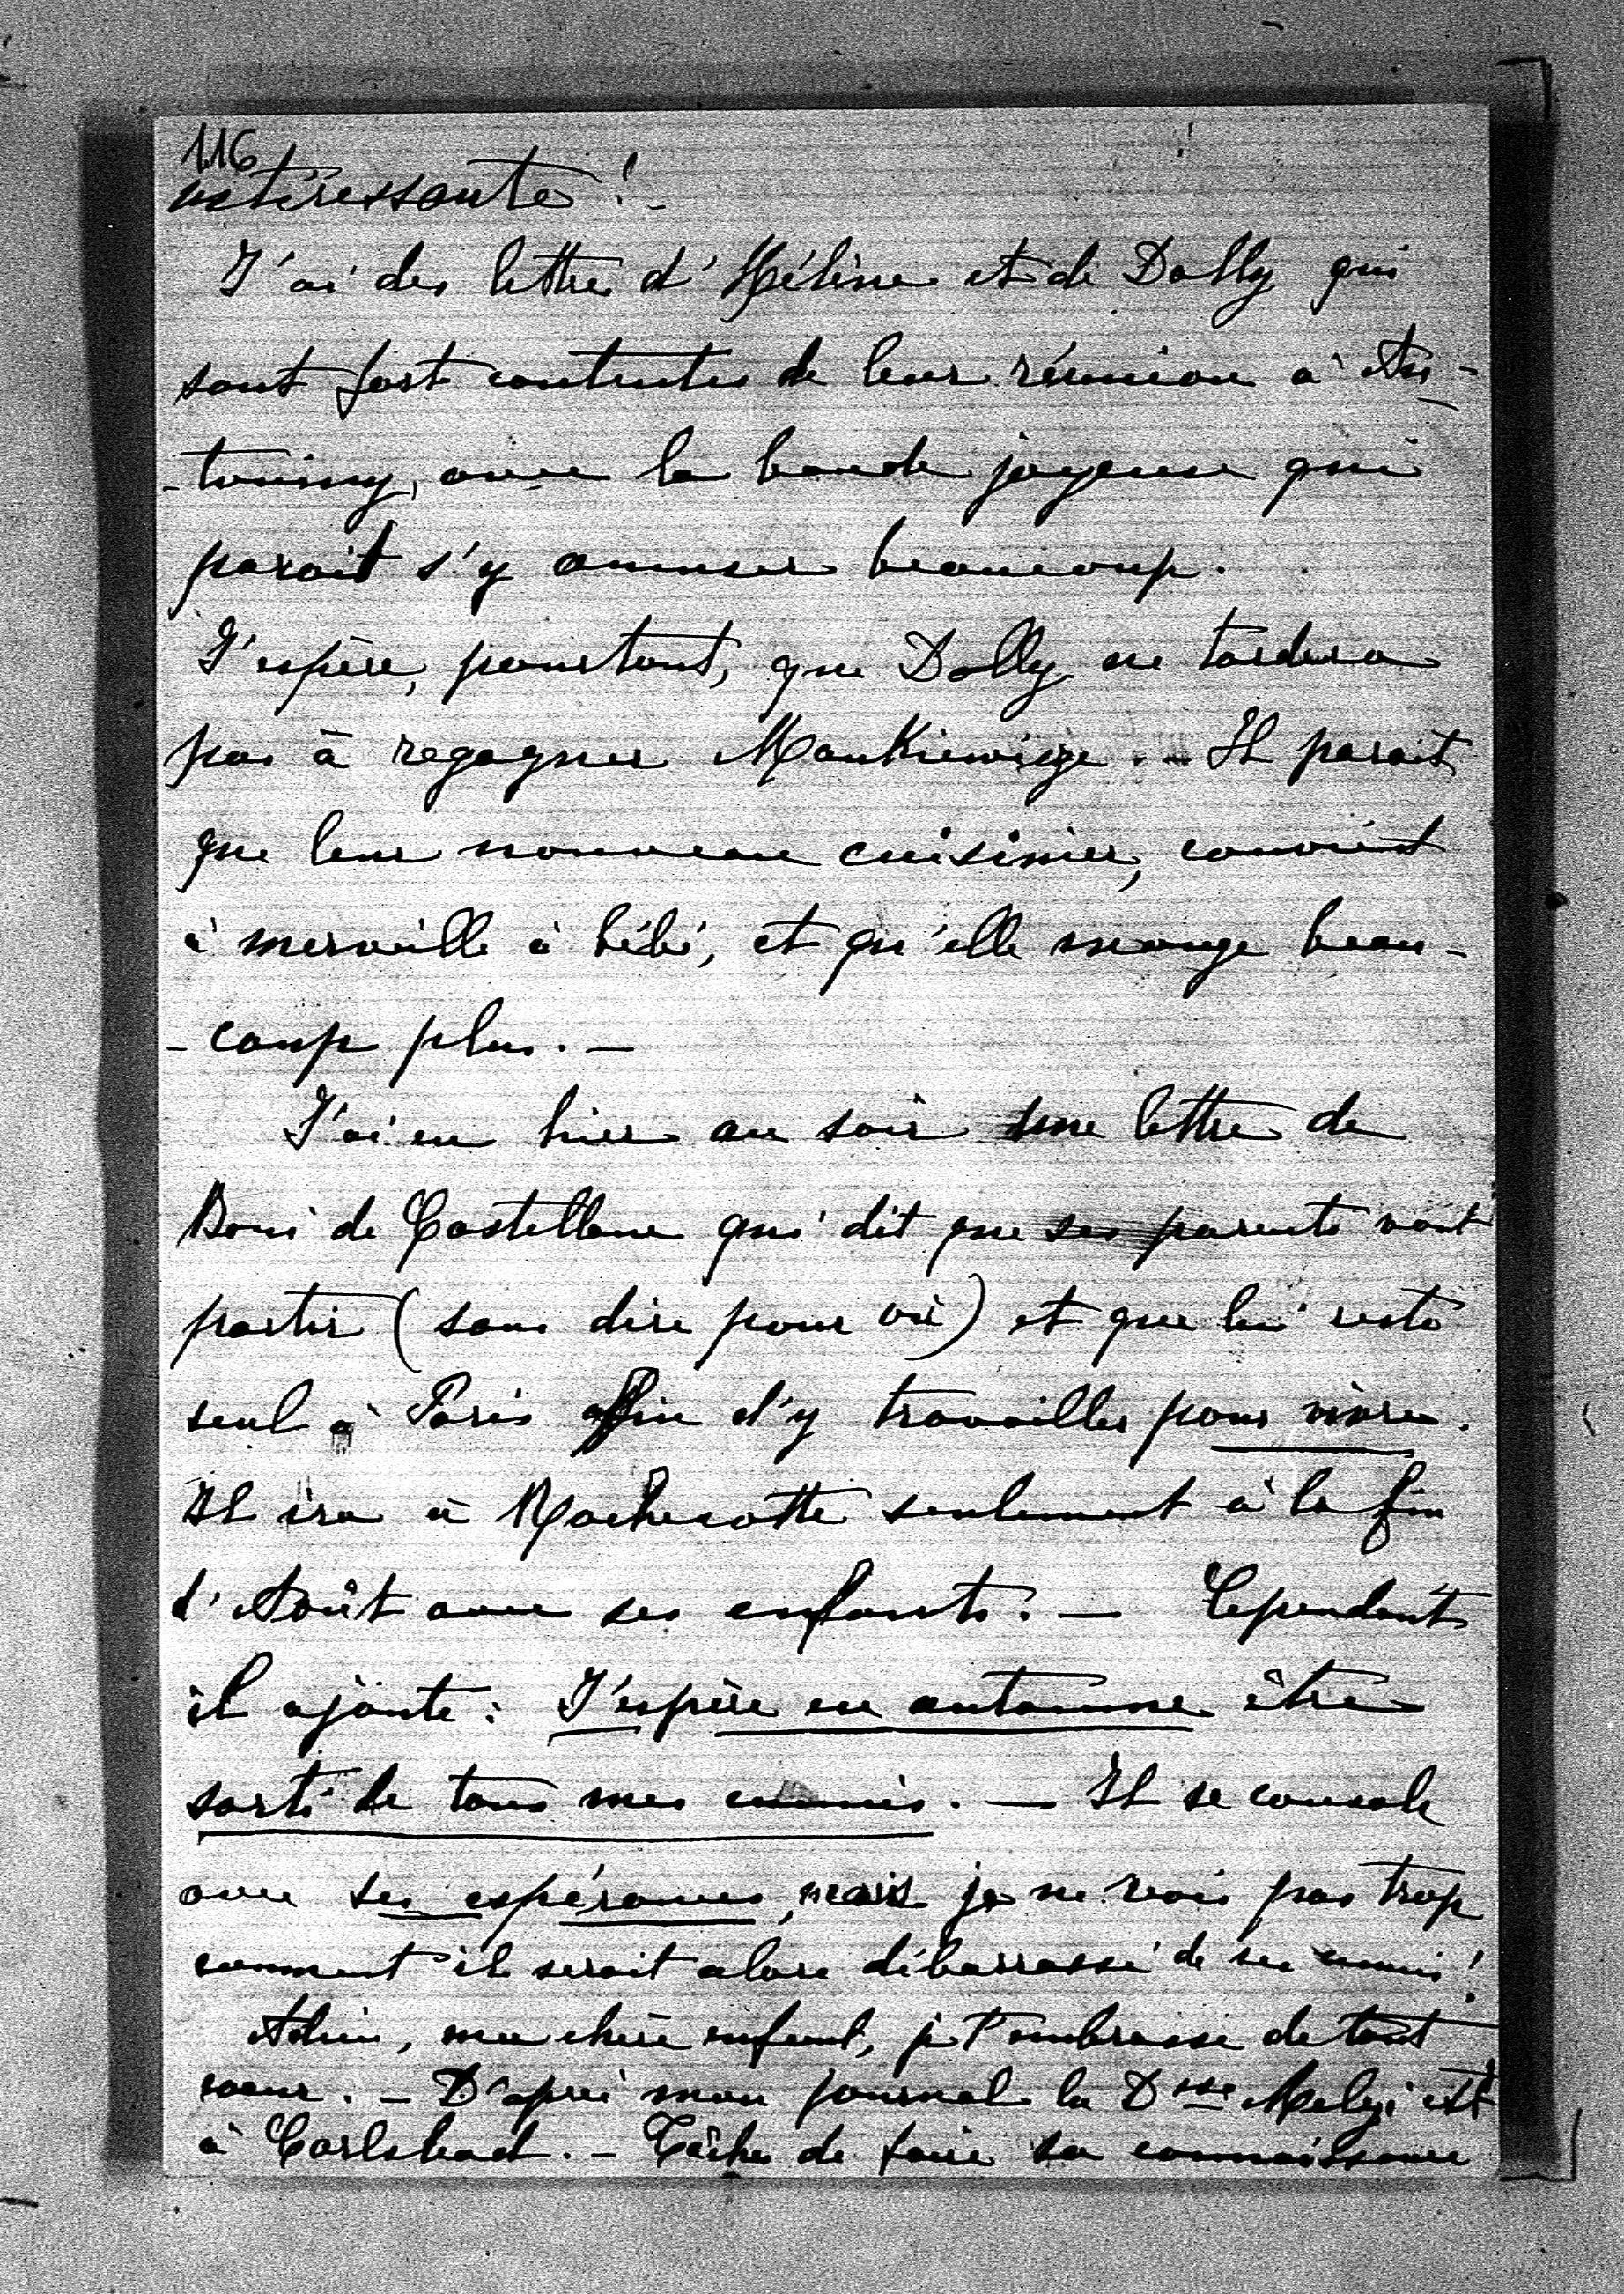 116
intéressante !-
J'ai des lettre d'Hélène et de Dolly qui
sont fort contentes de leur réunion à An-
-toniny, avec la bande joyeuse qui
parait s'y amuser beaucoup.
J'espère, pourtant, que Dolly ne tardera
pas à regagner Mankiewicze. - Il parait
que leur nouveau cuisinier, convient
à merveille à bébé, et qu'elle mange beau-
-coup plus. -
J'ai eu hier au soir une lettre de
Boni de Castellane qui dit que ses parents vont
partir (sans dire pour où) et que lui reste
seul à Paris afin d'y travailler pour vivre.
Il ira à Rochecotte seulement à la fin
d'Août avec ses enfants. - Cependant
il ajoute : J'espère en automne être
sorti de tous mes ennuis. - Il se console
avec ses espérances, mais je ne vois pas trop
comment il serait alors débarrassé de ses ennuis !
Adieu, ma chère enfant, je t'embrasse de tout
coeur. - D'après mon journal la Dsse Melzi est
à Carlsbad. - Tâchez de faire sa connaissance